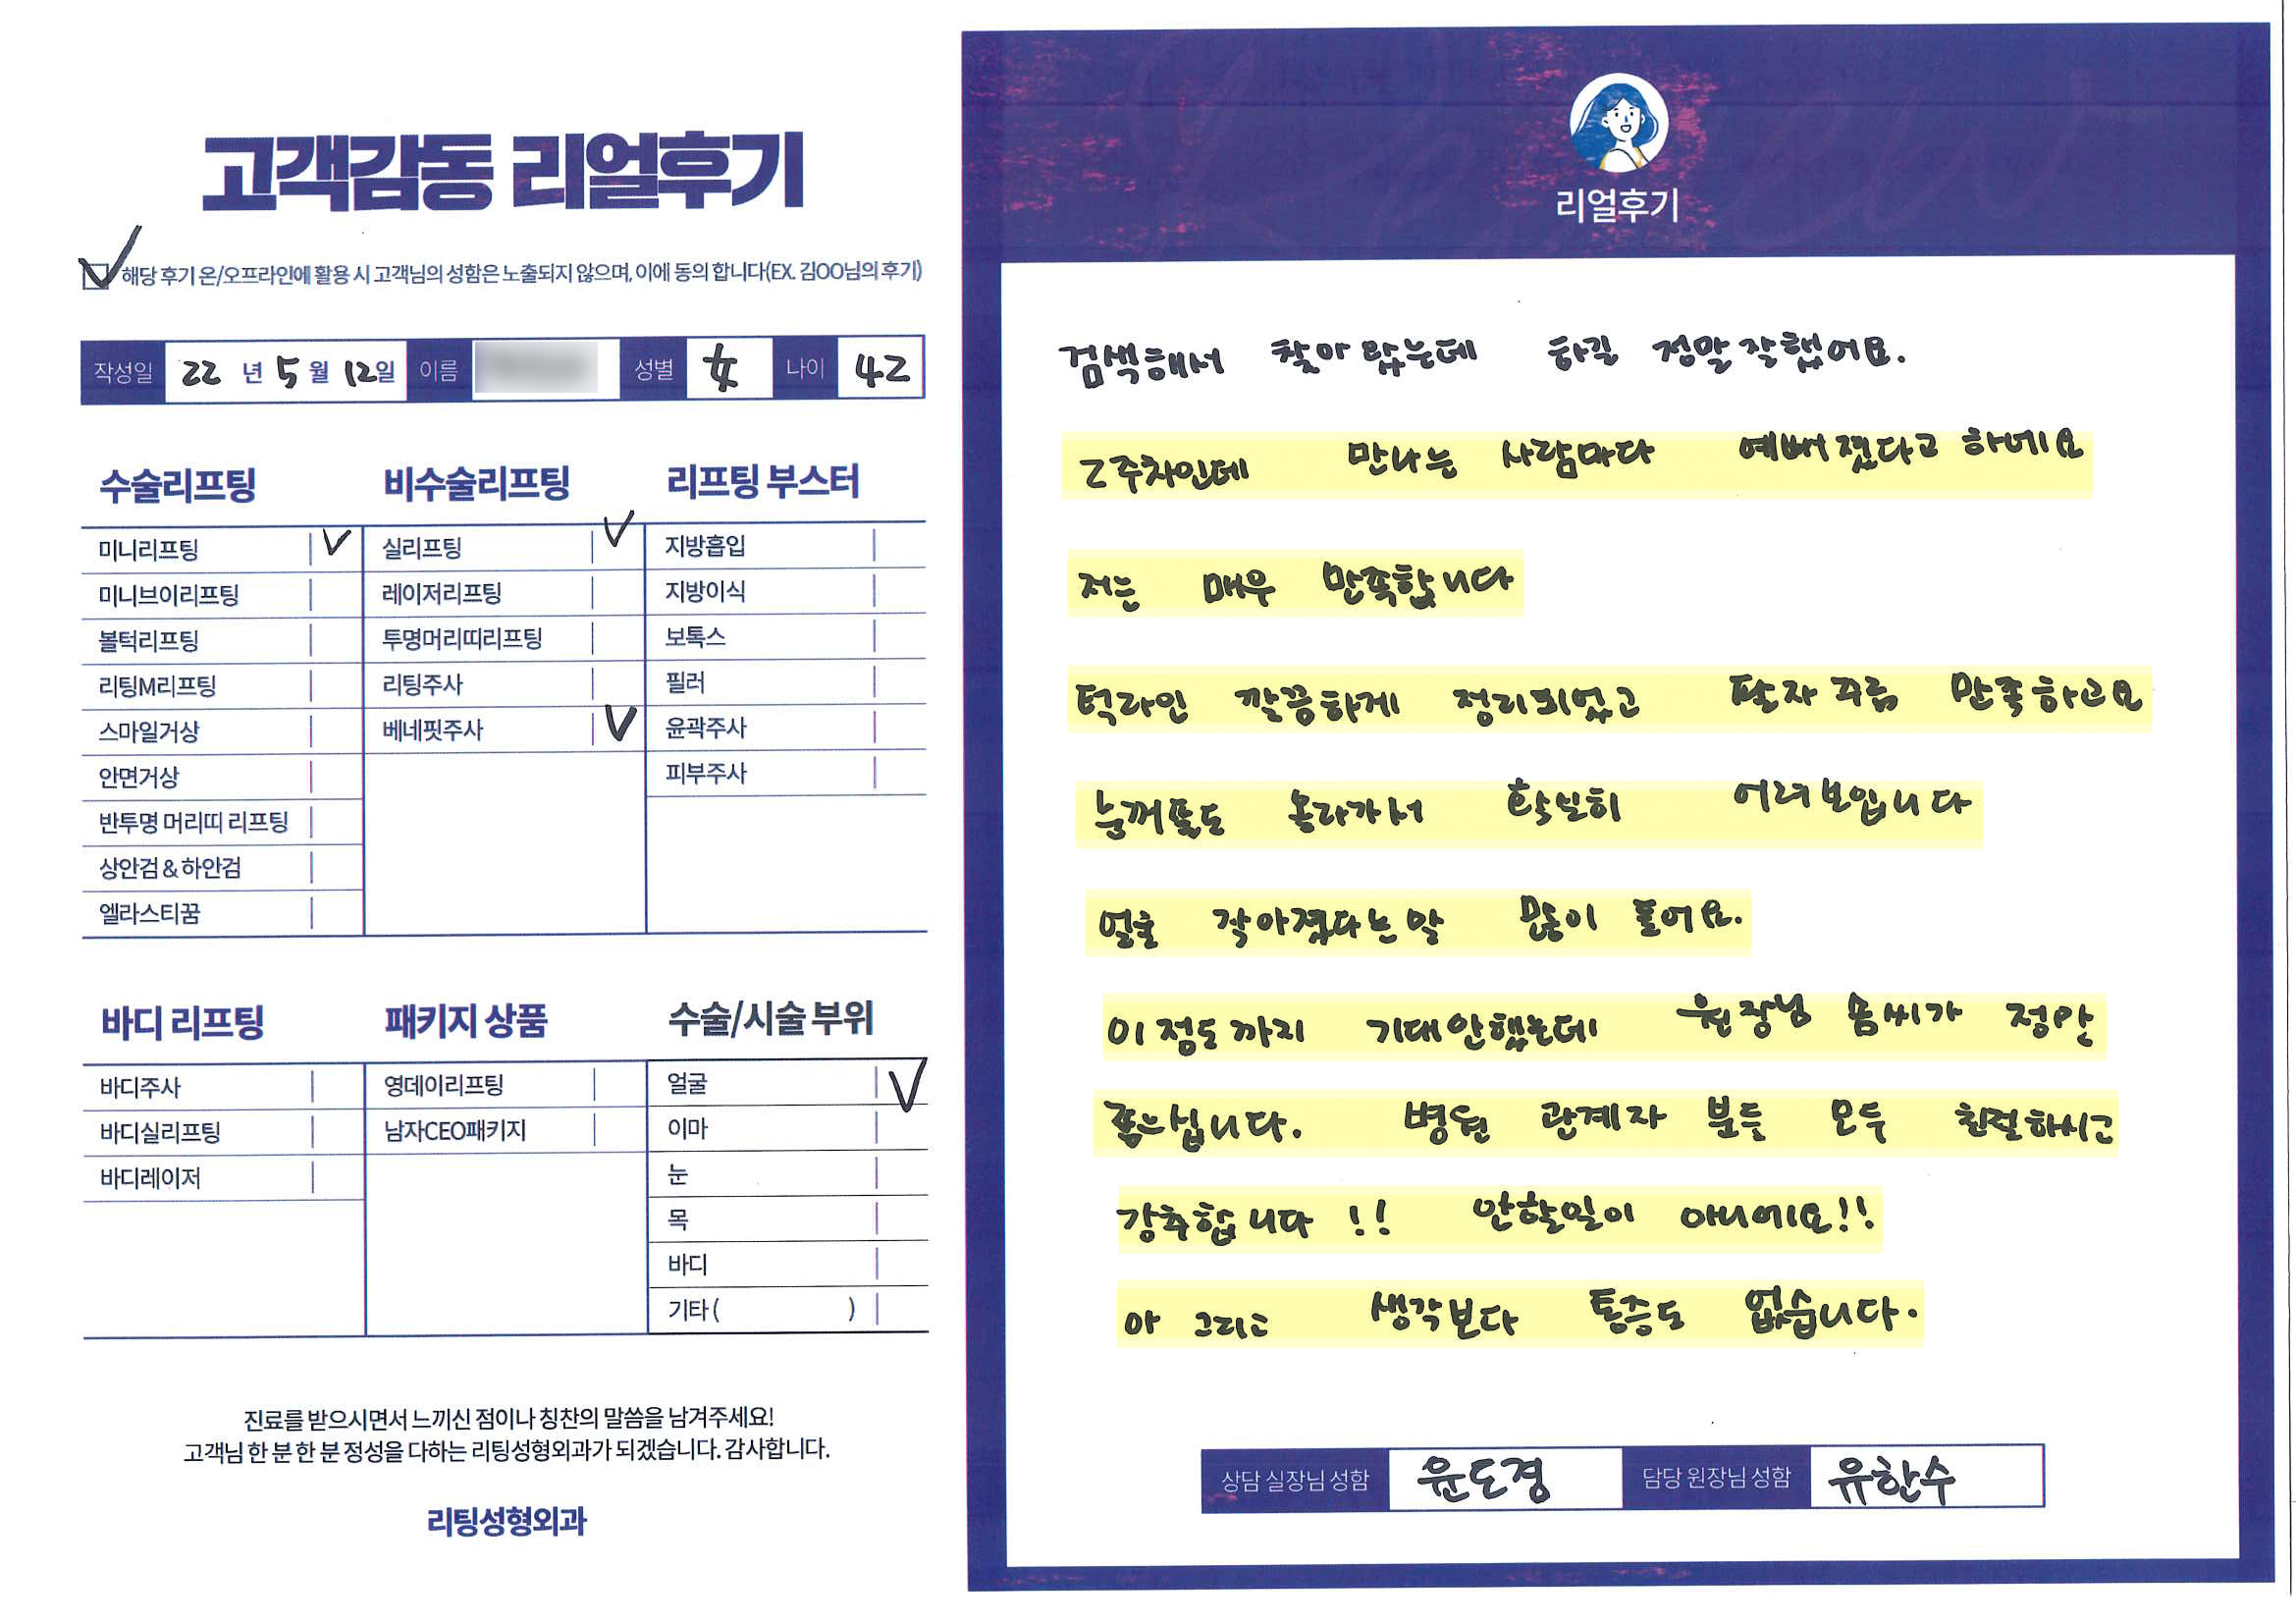 고객감동 리얼후기
해당 후기 온/오프라인에 활용 시 고객님의 성함은 노출되지 않으며, 이에 동의 합니다(EX. 김OO님의 후기)
작성일 22 년 5 월 12일 이름 성별 女 나이 42
수술리프팅
미니리프팅 V
미니브이리프팅
볼턱리프팅
리팅M리프팅
스마일거상
안면거상
반투명 머리띠 리프팅
상안검 & 하안검
엘라스티꿈
비수술리프팅
실리프팅 V
레이저리프팅
투명머리띠리프팅
리팅주사
베네핏주사 V
리프팅 부스터
지방흡입
지방이식
보톡스
필러
윤곽주사
피부주사
바디 리프팅
바디주사
바디실리프팅
바디레이저
패키지 상품
영데이리프팅
남자CEO패키지
수술/시술 부위
얼굴 V
이마
눈
목
바디
기타 ( )
진료를 받으시면서 느끼신 점이나 칭찬의 말씀을 남겨주세요!
고객님 한 분 한 분 정성을 다하는 리팅성형외과가 되겠습니다. 감사합니다.
리팅성형외과
리얼후기
검색해서 찾아 왔는데 하길 정말 잘했어요.
2주차인데 만나는 사람마다 예뻐졌다고 하네요
저는 매우 만족합니다
턱라인 깔끔하게 정리되었고 팔자 주름 만족하고요
눈꺼풀도 올라가서 확실히 어려보입니다
얼굴 작아졌다는 말 많이 들어요.
이 정도 까지 기대안했는데 원장님 솜씨가 정말
좋으십니다. 병원 관계자 분들 모두 친절하시고
강추합니다 !! 안할일이 아니에요!!
아 그리고 생각보다 통증도 없습니다.
상담 실장님 성함 윤도경 담당 원장님 성함 유한수